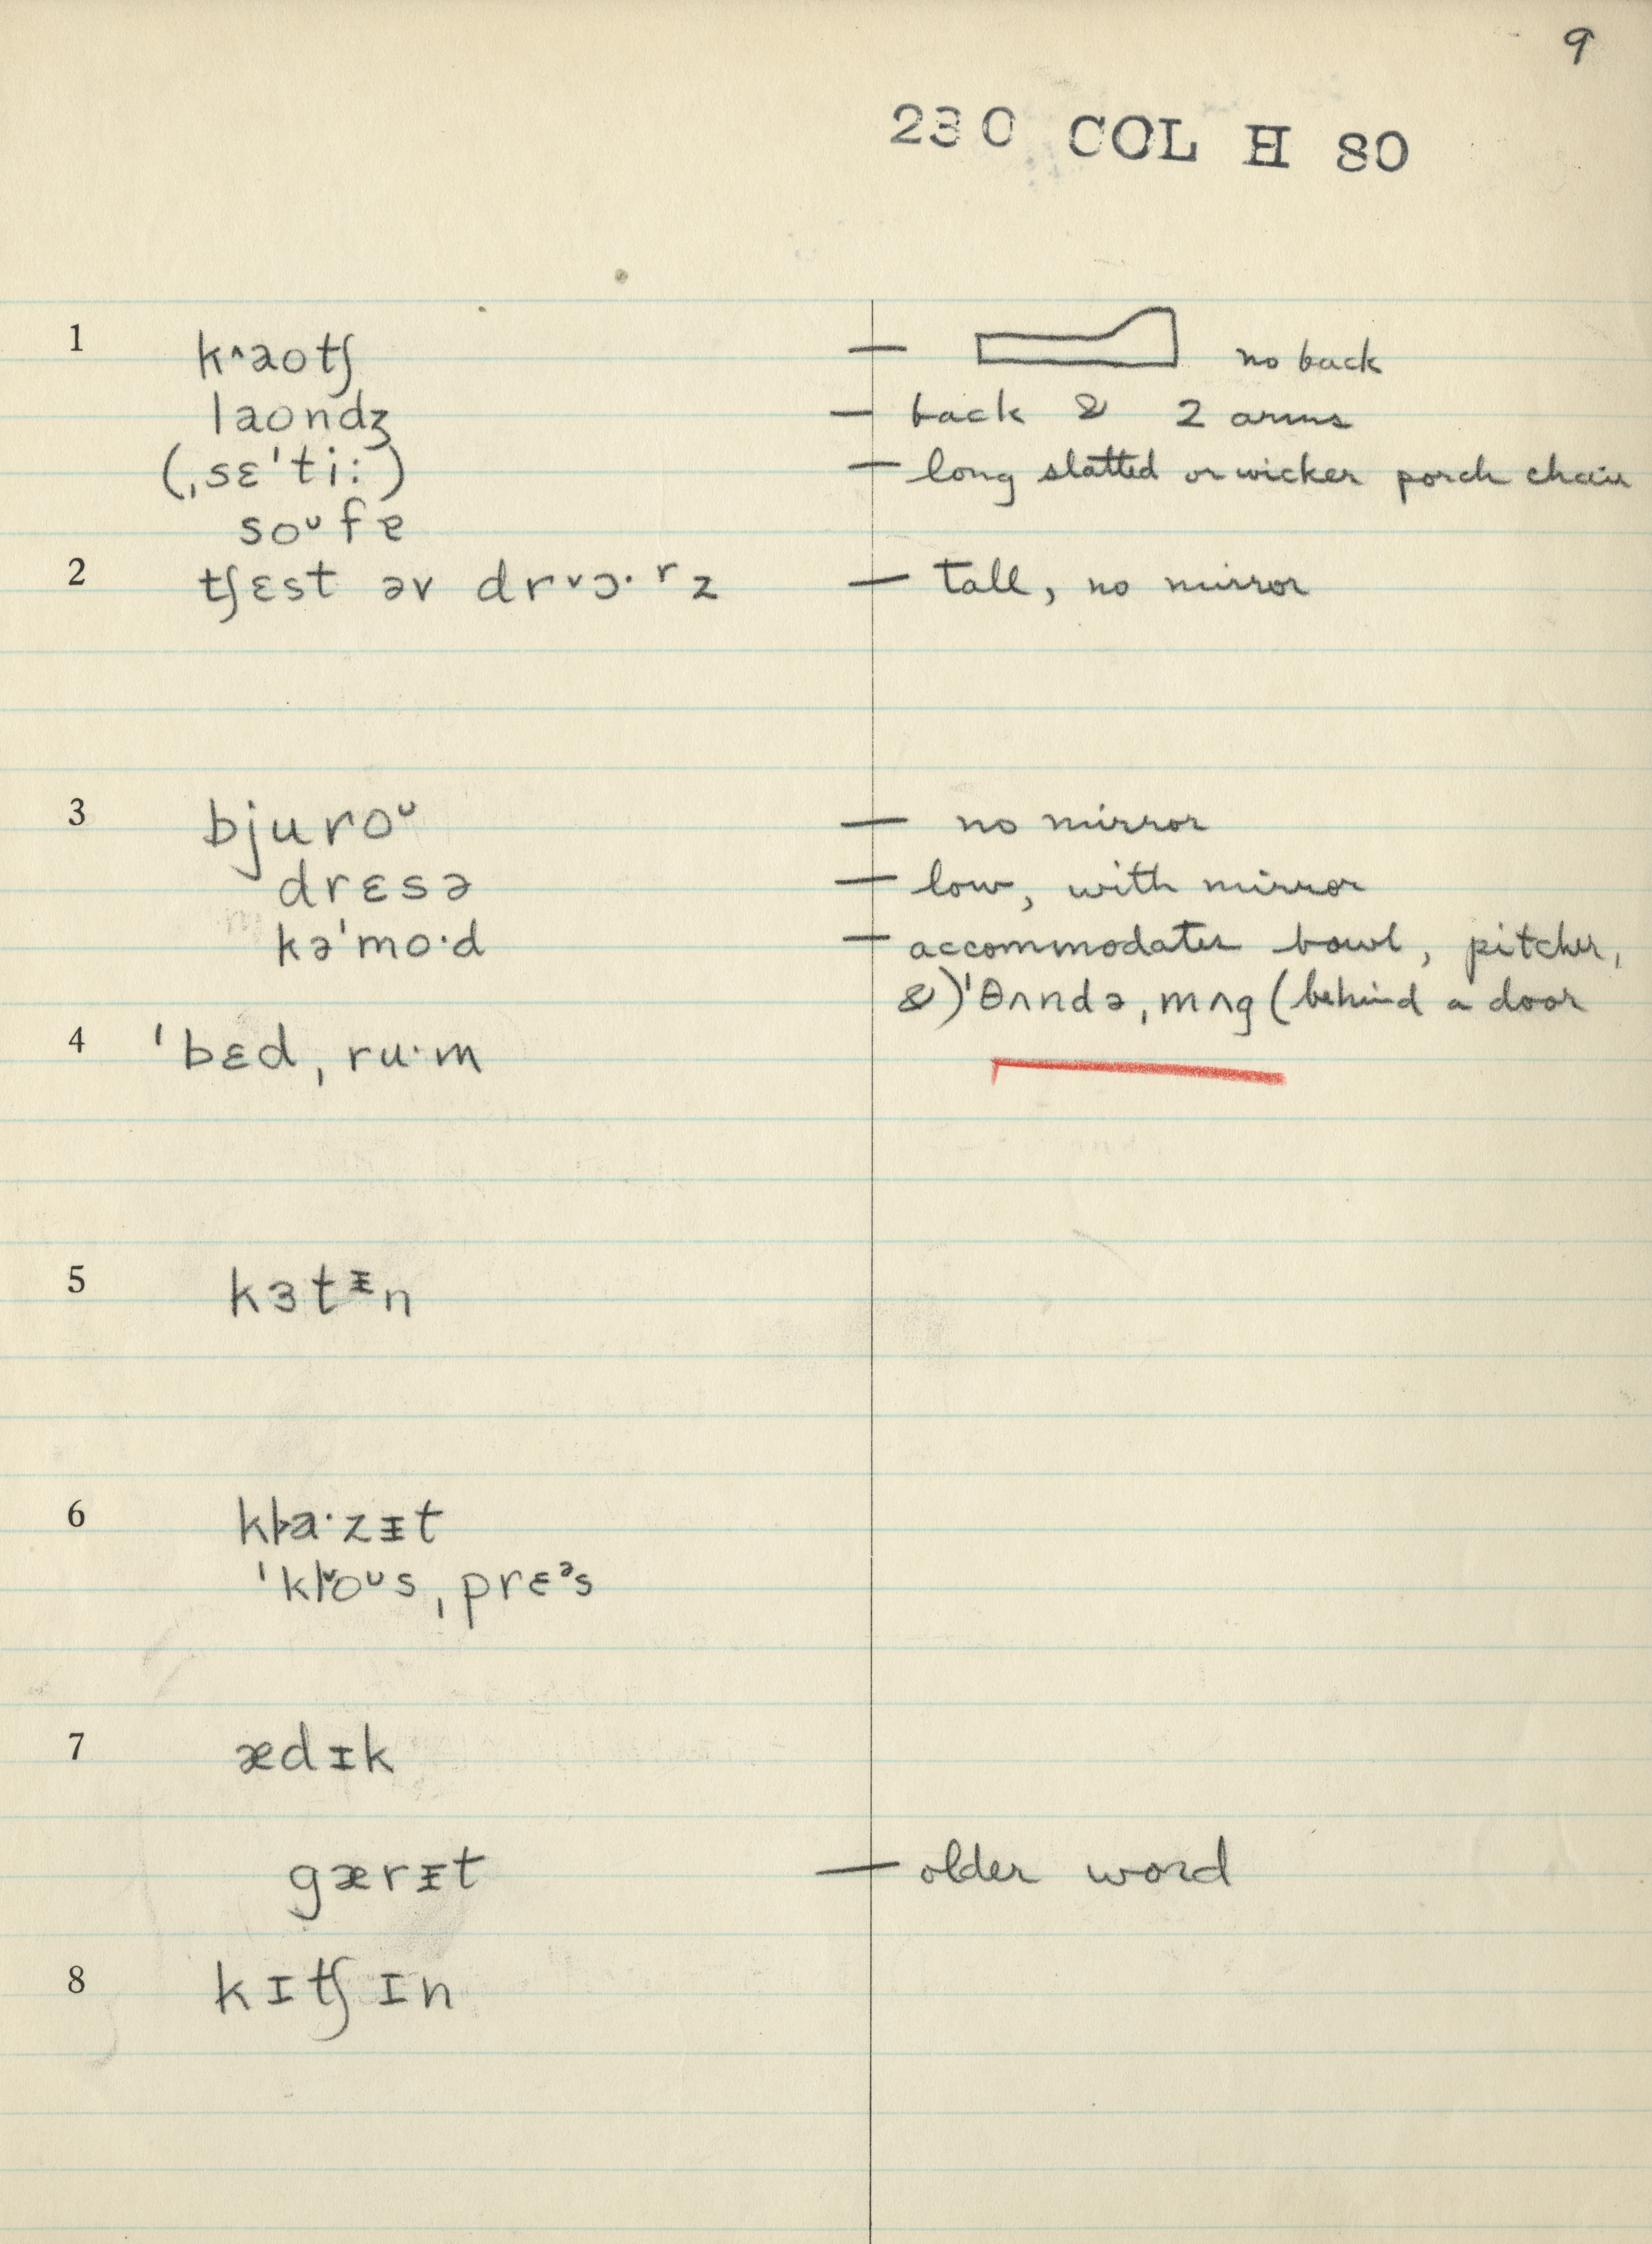 9
230 COL H 80
1 k^aotʃ — no back
laondʒ — back & 2 arms
(ˌsɛˈtiː) — long slatted or wicker porch chair
soᶷfɐ
2 tʃɛst əv drᵛɔ·ʳz — tall, no mirror
3 bjuroᶷ — no mirror
drɛsə — low, with mirror
kəˈmo·d — accommodates bowl, pitcher,
&)ˈθʌndəˌmʌg (behind a door
4 ˈbɛdˌru·m
5 kɜtᵻn
6 kɫa·zᵻt
ˈkɫoᶷsˌprɛᵊs
7 ædɪk
gærᵻt — older word
8 kɪtʃɪn